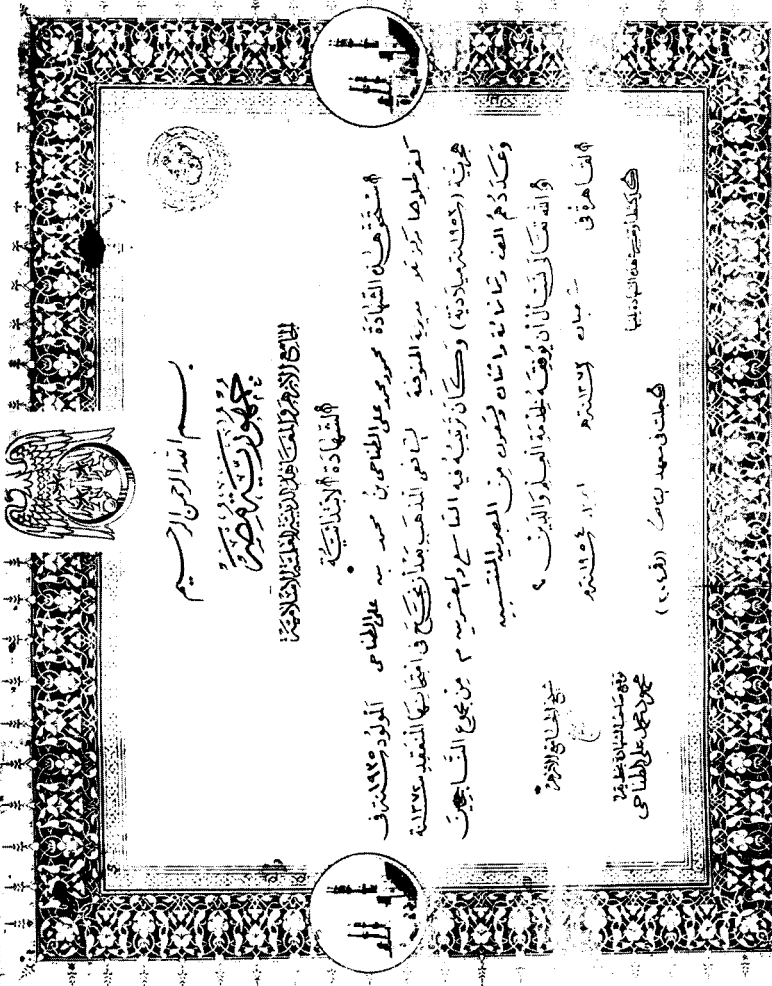 بسم الله الرحمن الرحيم
جمهورية مصر
الجامع الأزهر والمعاهد الدينية العلمية الإسلامية
الشهادة الابتدائية
استحق هذه الشهادة محمود محمد على الطناحى بن محمد بن على الطناحى المولود سنة ١٩٣٥ فى
كفر طبلوها مركز تلا مديرية المنوفية الشافعى المذهب بعد أن نجح فى امتحانها المنعقد سنة ١٣٧٢
هجرية (سنة ١٩٥٣ ميلادية) وكان ترتيبه فيه التاسع والعشرين من مجموع الناجحين
وعددهم ألف وثمانمائة واثنان وتسعون من المصريين المنتسبين
والله تعالى نسأل أن يوفقه لخدمة العلم والدين
القاهرة فى شعبان سنة ١٣٧٣هـ ابريل سنة ١٩٥٤م
شيخ الجامع الأزهر
سجلت فى معهد
توقيع صاحب الشهادة بخطه
محمود محمد على الطناحى